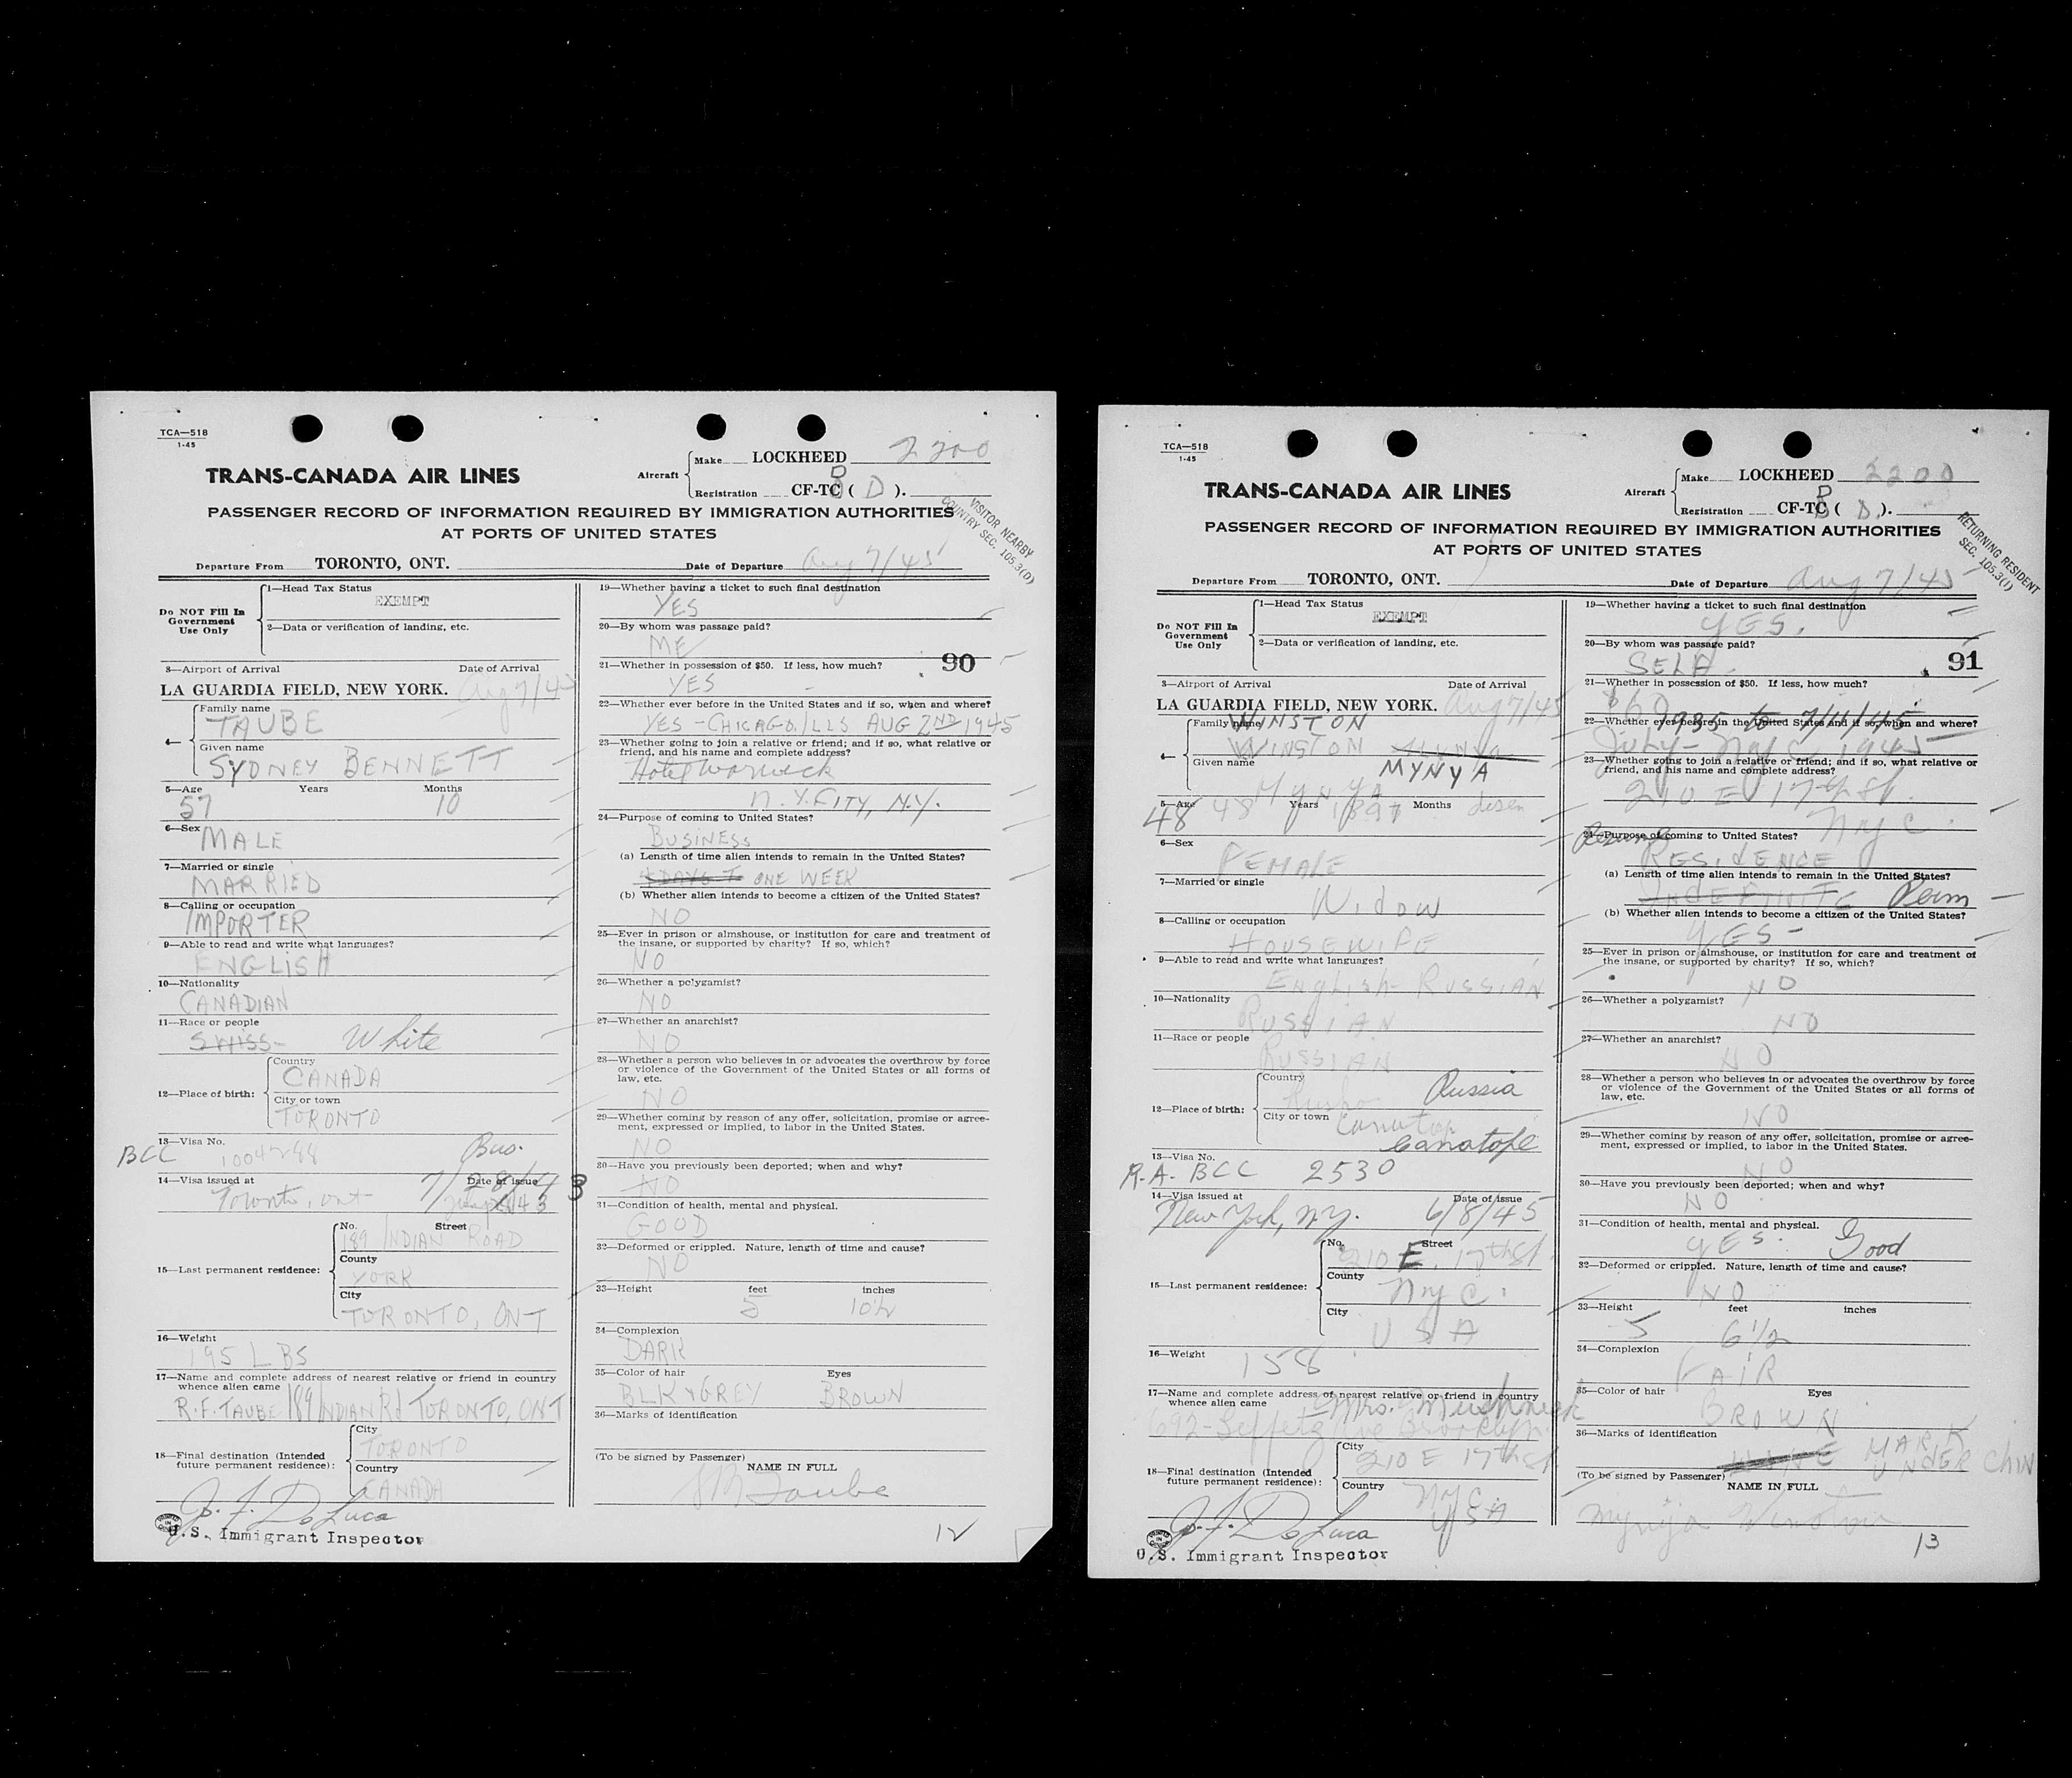 TCA—518
1-45
TRANS-CANADA AIR LINES
Aircraft
Make LOCKHEED 2200
Registration CF-TC ( B D ).
PASSENGER RECORD OF INFORMATION REQUIRED BY IMMIGRATION AUTHORITIES
AT PORTS OF UNITED STATES
VISITOR NEARBY
COUNTRY SEC. 105.3(D)
Departure From TORONTO, ONT. Date of Departure Aug 7/45
Do NOT Fill In
Government
Use Only
1—Head Tax Status
EXEMPT
2—Data or verification of landing, etc.
3—Airport of Arrival Date of Arrival
LA GUARDIA FIELD, NEW YORK. Aug 7/45
4—
Family name
TAUBE
Given name
SYDNEY BENNETT
5—Age Years Months
57 10
6—Sex MALE
7—Married or single
MARRIED
8—Calling or occupation
IMPORTER
9—Able to read and write what languages?
ENGLISH
10—Nationality
CANADIAN
11—Race or people
SWISS- White
12—Place of birth:
Country
CANADA
City or town
TORONTO
13—Visa No. Bus.
BCC 1004288
14—Visa issued at Date of issue
Toronto, ont 7/28/43
15—Last permanent residence:
No. Street
189 INDIAN ROAD
County
YORK
City
TORONTO, ONT
16—Weight
195 LBS
17—Name and complete address of nearest relative or friend in country
whence alien came
R.F. TAUBE 189 INDIAN Rd TORONTO, ONT
18—Final destination (Intended
future permanent residence):
City
TORONTO
Country
CANADA
J. F. DeLuca
U.S. Immigrant Inspector
19—Whether having a ticket to such final destination
YES
20—By whom was passage paid?
ME
21—Whether in possession of $50. If less, how much? 90
YES
22—Whether ever before in the United States and if so, when and where?
YES - CHICAGO. ILLS AUG 2ND 1945
23—Whether going to join a relative or friend; and if so, what relative or
friend, and his name and complete address?
Hotel Warwick
N.Y. CITY, N.Y.
24—Purpose of coming to United States?
BUSINESS
(a) Length of time alien intends to remain in the United States?
ONE WEEK
(b) Whether alien intends to become a citizen of the United States?
NO
25—Ever in prison or almshouse, or institution for care and treatment of
the insane, or supported by charity? If so, which?
NO
26—Whether a polygamist?
NO
27—Whether an anarchist?
NO
28—Whether a person who believes in or advocates the overthrow by force
or violence of the Government of the United States or all forms of
law, etc.
NO
29—Whether coming by reason of any offer, solicitation, promise or agree-
ment, expressed or implied, to labor in the United States.
NO
30—Have you previously been deported; when and why?
NO
31—Condition of health, mental and physical.
GOOD
32—Deformed or crippled. Nature, length of time and cause?
NO
33—Height feet inches
5 10½
34—Complexion
DARK
35—Color of hair Eyes
BLK & GREY BROWN
36—Marks of identification
(To be signed by Passenger)
NAME IN FULL
S B Taube
12
TCA—518
1-45
TRANS-CANADA AIR LINES
Aircraft
Make LOCKHEED 2200
Registration CF-TC ( B D. ).
PASSENGER RECORD OF INFORMATION REQUIRED BY IMMIGRATION AUTHORITIES
AT PORTS OF UNITED STATES
RETURNING RESIDENT
SEC. 105.3(1)
Departure From TORONTO, ONT. Date of Departure Aug 7/45
Do NOT Fill In
Government
Use Only
1—Head Tax Status
EXEMPT
2—Data or verification of landing, etc.
3—Airport of Arrival Date of Arrival
LA GUARDIA FIELD, NEW YORK. Aug 7/45
4—
Family name WINSTON
WINSTON
Given name MYNYA
MYNYA
5—Age Years Months
48 48 1897
6—Sex
FEMALE
7—Married or single
Widow
8—Calling or occupation
HOUSEWIFE
9—Able to read and write what languages?
English - RUSSIAN
10—Nationality
RUSSIAN
11—Race or people
RUSSIAN
12—Place of birth:
Country
Russia
City or town Canatop
Canatope
13—Visa No.
R.A. BCC 2530
14—Visa issued at Date of issue
New York, N.Y. 6/8/45
15—Last permanent residence:
No. Street
210 E. 17th St
County
NYC.
City
USA
16—Weight 158
17—Name and complete address of nearest relative or friend in country
whence alien came Mrs.
692-
Brooklyn
18—Final destination (Intended
future permanent residence):
City
210 E 17th St
Country NYC
USA
J. F. DeLuca
U.S. Immigrant Inspector
19—Whether having a ticket to such final destination
YES.
20—By whom was passage paid?
SELF 91
21—Whether in possession of $50. If less, how much?
$60
22—Whether ever before in the United States and if so, when and where?
1935 to 7/11/45
July - NYC 1945
23—Whether going to join a relative or friend; and if so, what relative or
friend, and his name and complete address?
210 E 17th St.
NYC.
24—Purpose of coming to United States?
RESIDENCE
(a) Length of time alien intends to remain in the United States?
INDEFINITE Perm
(b) Whether alien intends to become a citizen of the United States?
YES -
25—Ever in prison or almshouse, or institution for care and treatment of
the insane, or supported by charity? If so, which?
NO
26—Whether a polygamist?
NO
27—Whether an anarchist?
NO
28—Whether a person who believes in or advocates the overthrow by force
or violence of the Government of the United States or all forms of
law, etc.
NO
29—Whether coming by reason of any offer, solicitation, promise or agree-
ment, expressed or implied, to labor in the United States.
NO
30—Have you previously been deported; when and why?
NO
31—Condition of health, mental and physical.
YES. Good
32—Deformed or crippled. Nature, length of time and cause?
NO
33—Height feet inches
5 6 1/2
34—Complexion
FAIR
35—Color of hair Eyes
BROWN
36—Marks of identification
MARK
UNDER Chin
(To be signed by Passenger)
NAME IN FULL
Mynya Winston
13